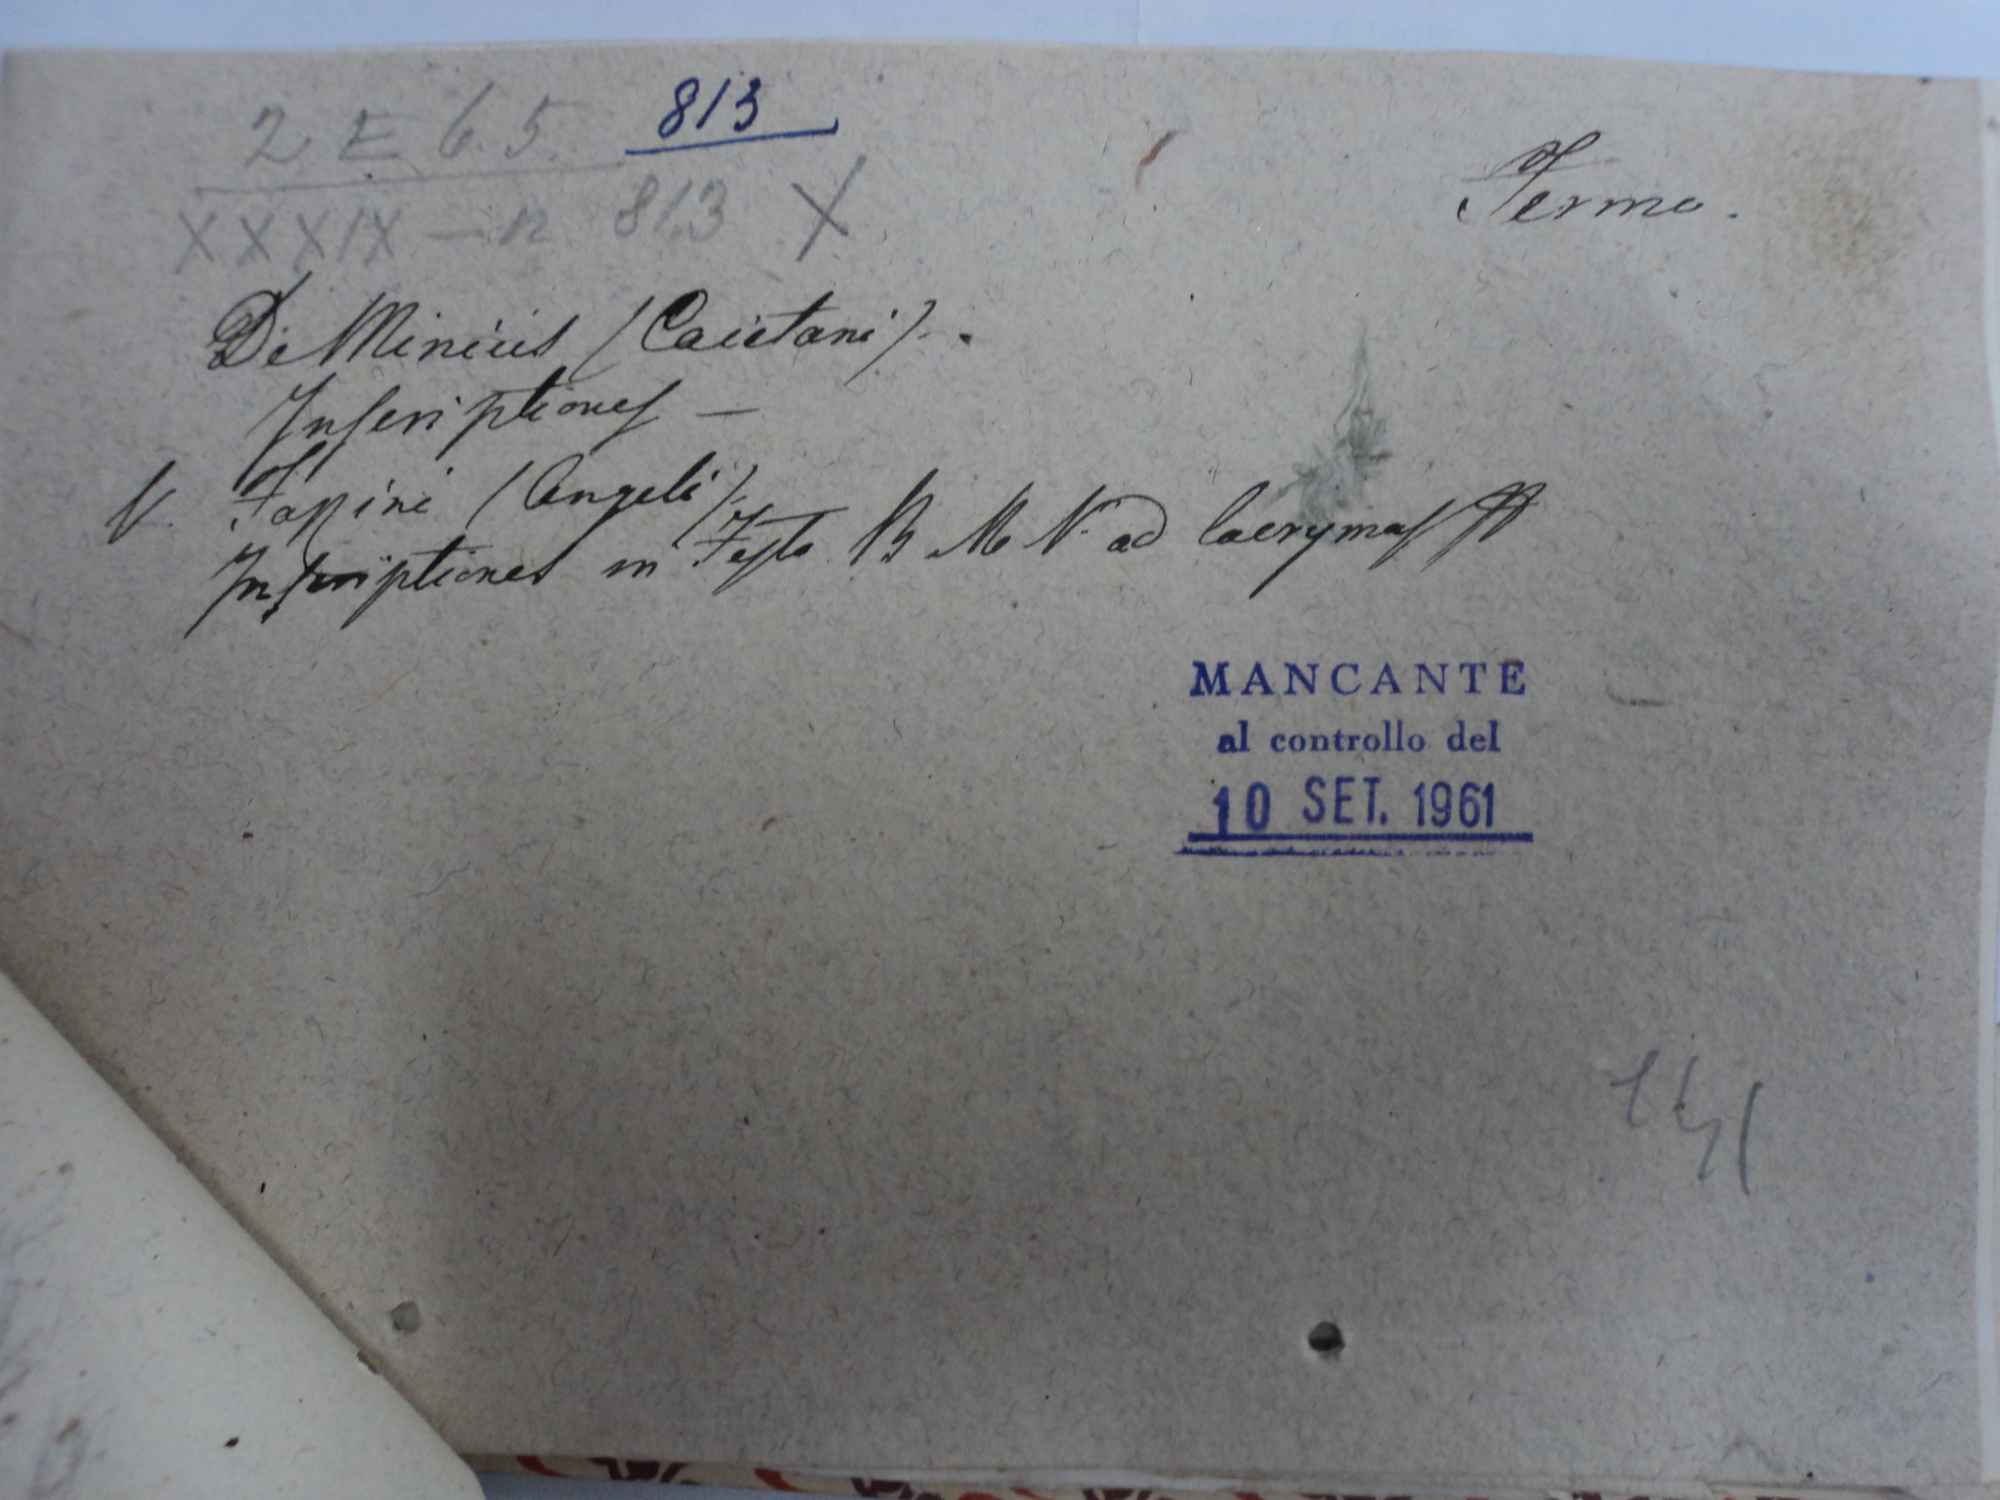 2 E 6.5. 813
XXXIX - n 813 X
Fermo.
De Miniciis (Caietani) .
Inscriptiones —
V. Fassini (Angeli)
Inscriptiones in Festo B M V. ad lacrymas
MANCANTE
al controllo del
10 SET. 1961